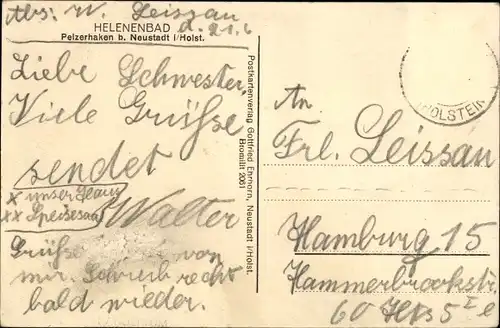 Abs: W. Leissau
HELENENBAD d. 21.6
Pelzerhaken b. Neustadt i/Holst.
Liebe Schwester
Viele Grüsse
sendet
x unser Haus
xx Speisesaal
Walter
Grüsse von
mir. Schreib recht
bald wieder.
Postkartenverlag Gottfried Ehrhorn, Neustadt i/Holst.
Bromilit 2061
(HOLSTEIN)
An
Frl. Leissau
Hamburg 15
Hammerbrookstr.
60 Hs 5 I e